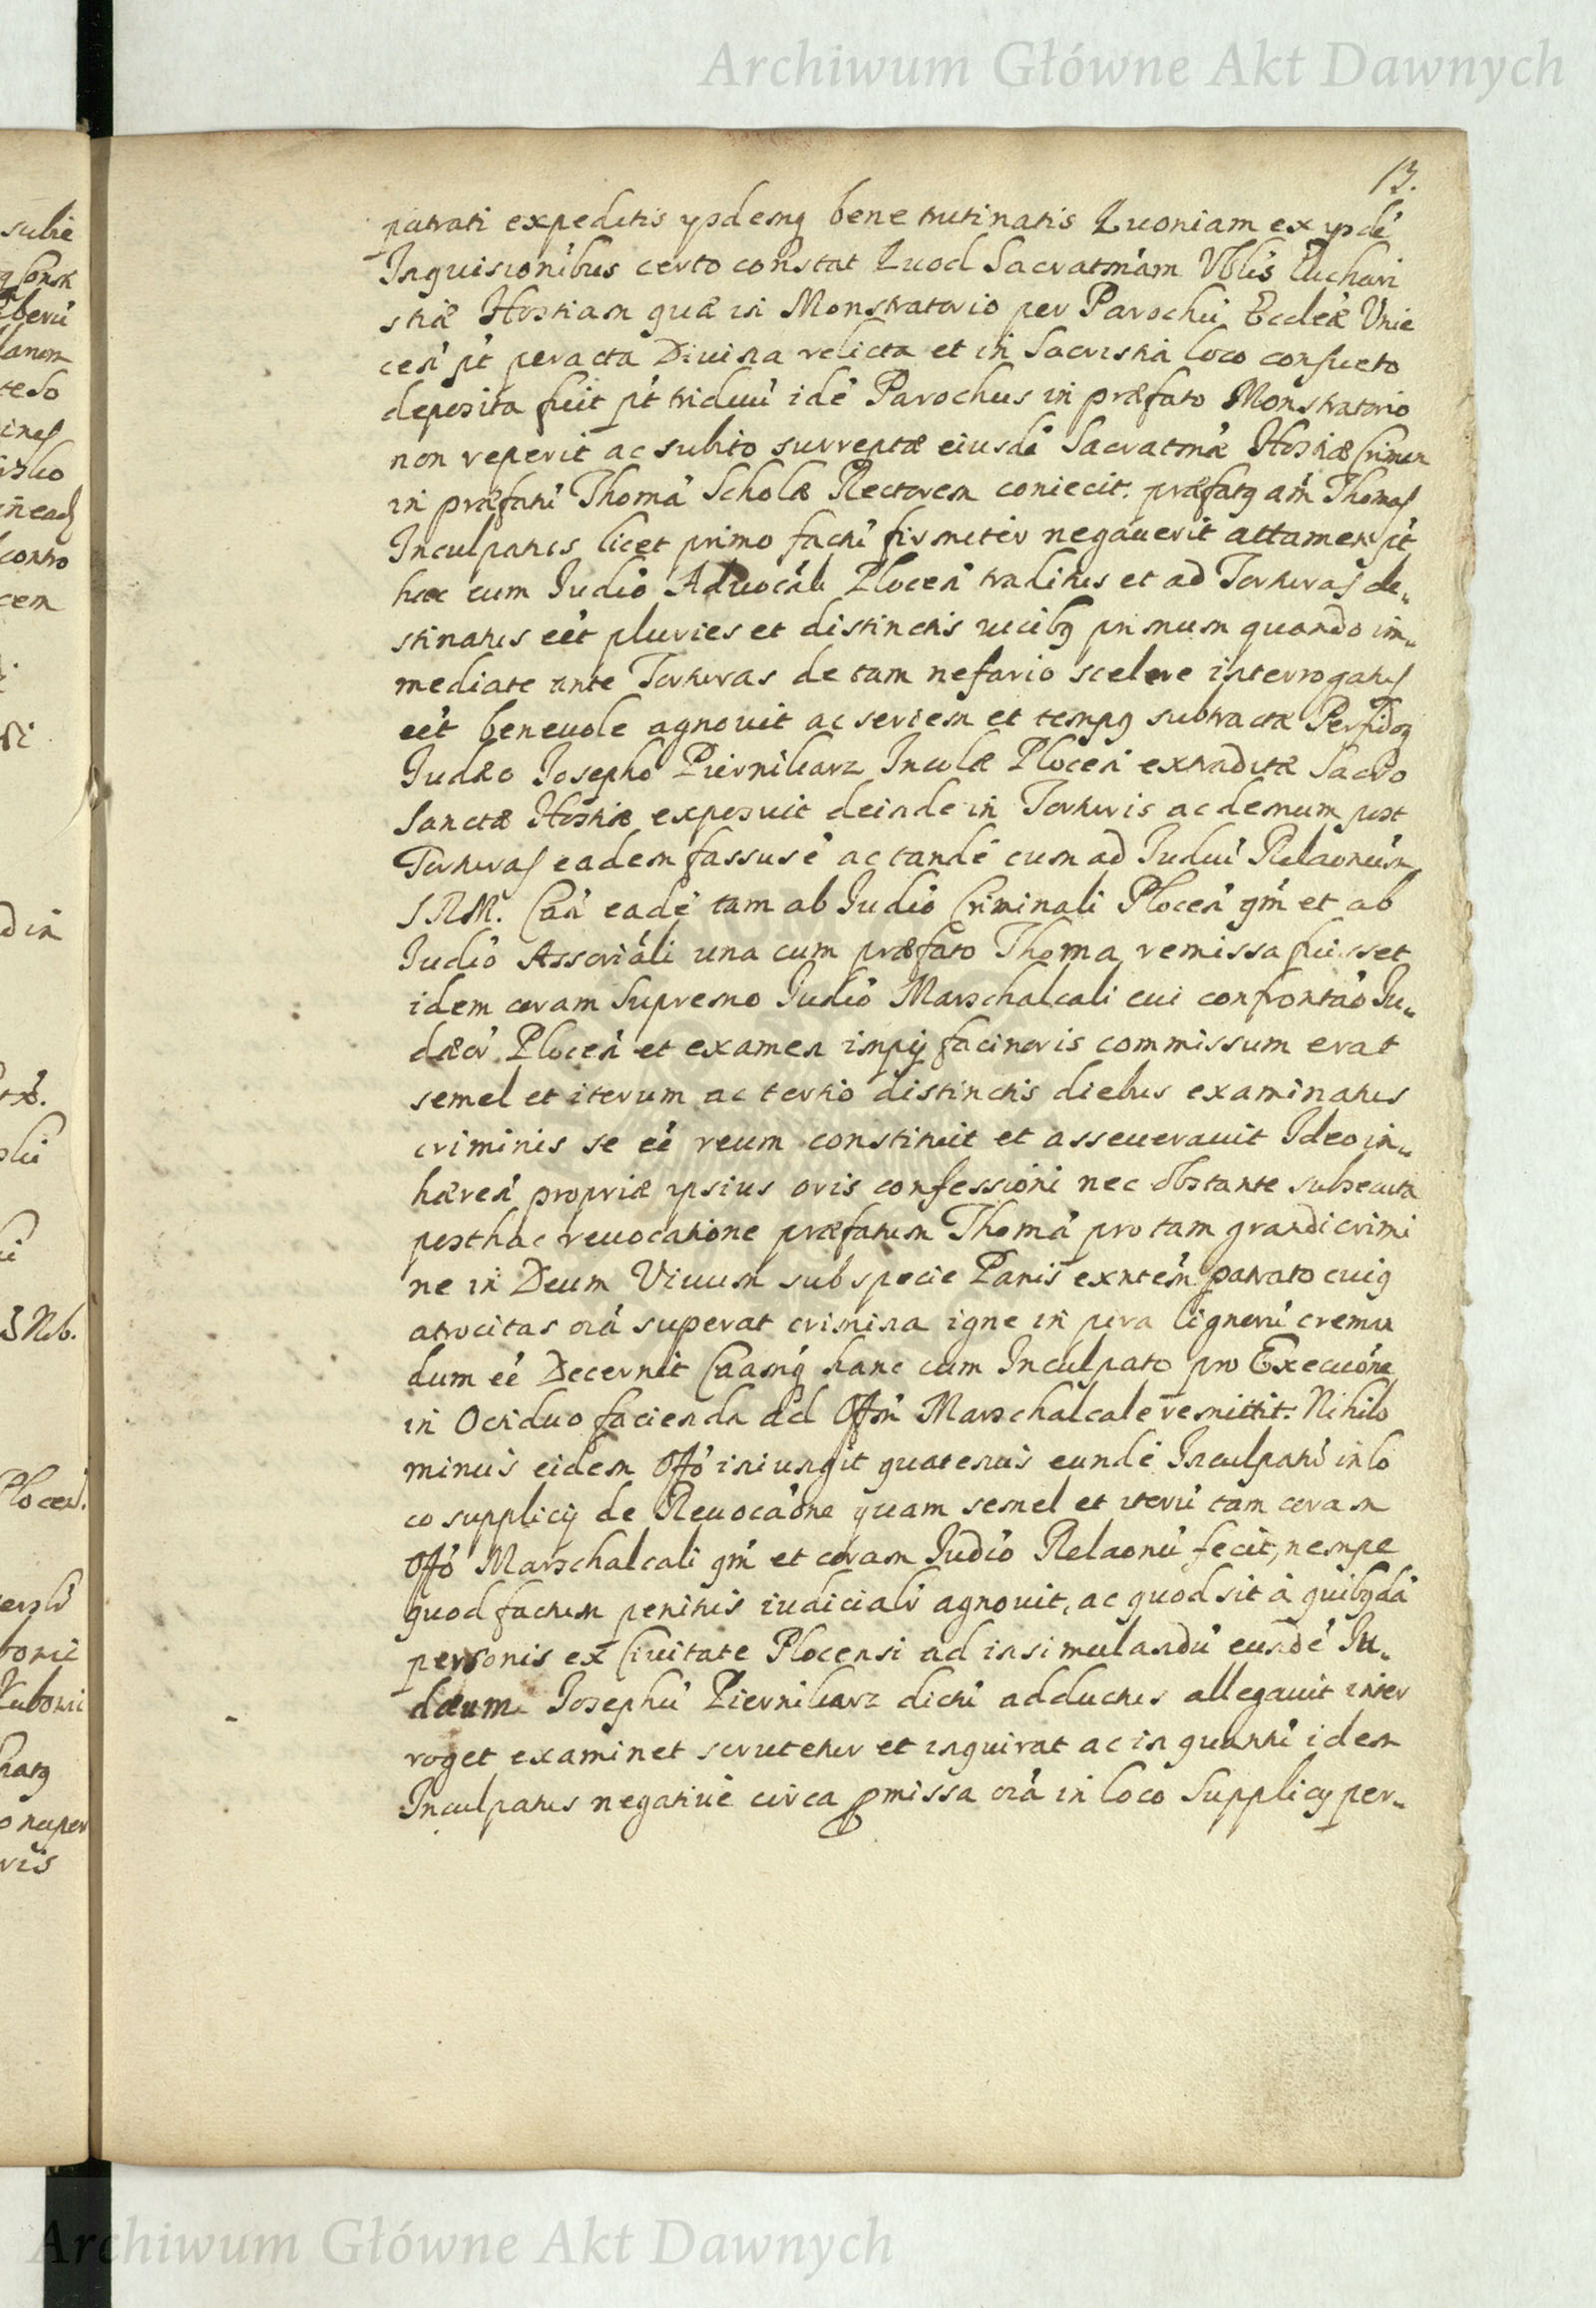 Archiwum Główne Akt Dawnych
13.
patrati expeditis ysdemq bene trutinatis Quoniam ex ysdẽ
Inquisionibus certo constat Quod Sacratmam Vblis Euchari
stiæ Hostiam quæ in Monstratorio per Parochũ Eccleæ Unie
ceñ pt peracta Divina relicta et in Sacristia loco consueto
deposita fuit pt triduũ idẽ Parochus in præfato Monstratorio
non reperit ac subito surreptæ eiusdẽ Sacratmæ Hostiæ Crimen
in præfatũ Thomã Scholæ Rectorem coniecit. præfatq am Thomas
Inculpatus licet primo factũ firmiter negaverit attamen pt
hæc cum Iudio Advocali Plocen traditus et ad Torturas de„
stinatus eet pluries et distinctis vicibq primum quando im„
mediate ante Torturas de tam nefario scelere interrogatus
eet benevole agnovit ac seriem et tempq subtractæ Perfidoq
Iudæo Iosepho Piernikarz Incolæ Plocen extraditæ Sacro
Sanctæ Hostiæ exposuit deinde in Torturis ac demum post
Torturas eadem fassus ẽ ac tandẽ cum ad Iudiũ Relaonum
S.R.M. Caã eadẽ tam ab Iudio Criminali Plocen qm et ab
Iudio Assoriali una cum præfato Thoma remissa fuisset
idem coram Supremo Iudio Marschalcali cui confrontao Iu„
dæor Plocen et examen impij facinoris commissum erat
semel et iterum ac tertio distinctis diebus examinatus
criminis se eẽ reum constituit et asseveravit Ideo in„
hæren propriæ ysius oris confessioni nec obstante subsecuta
posthac revocatione præfatum Thomã pro tam grandi crimi
ne in Deum Vivum sub specie Panis extntem patrato cuiq
atrocitas oia superat crimina igne in pira lignerũ creman
dum eẽ Decernit Caamq hanc cum Inculpato pro Execuone
in Octiduo facienda ad Offm Marschalcale remittit. Nihilo
minus eidem Offo iniungit quatenus eundẽ Inculpatũ in lo
co supplicij de Revocaone quam semel et iterũ tam coram
Offo Marschalcali qm et coram Iudio Relaonũ fecit, nempe
quod factum penitus iudicialr agnovit, ac quod sit à quibqdã
personis ex Civitate Plocensi ad insimulandũ eundẽ Iu„
dæum Iosephũ Piernikarz dictũ adductus allegavit inter
roget examinet scrutetur et inquirat ac in quantũ idem
Inculpatus negative circa pmissa oia in loco Supplicij per„
Archiwum Główne Akt Dawnych